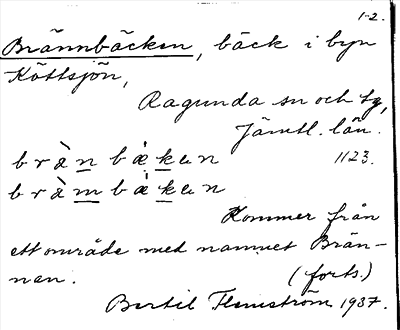 1-2.
Brännbäcken, bäck i byn
Köttsjön,
Ragunda sn och tg,
Jämtl. län.
1123.
Kommer från
ett område med namnet Brän-
nan. (forts.)
Bertil Flemström 1937.